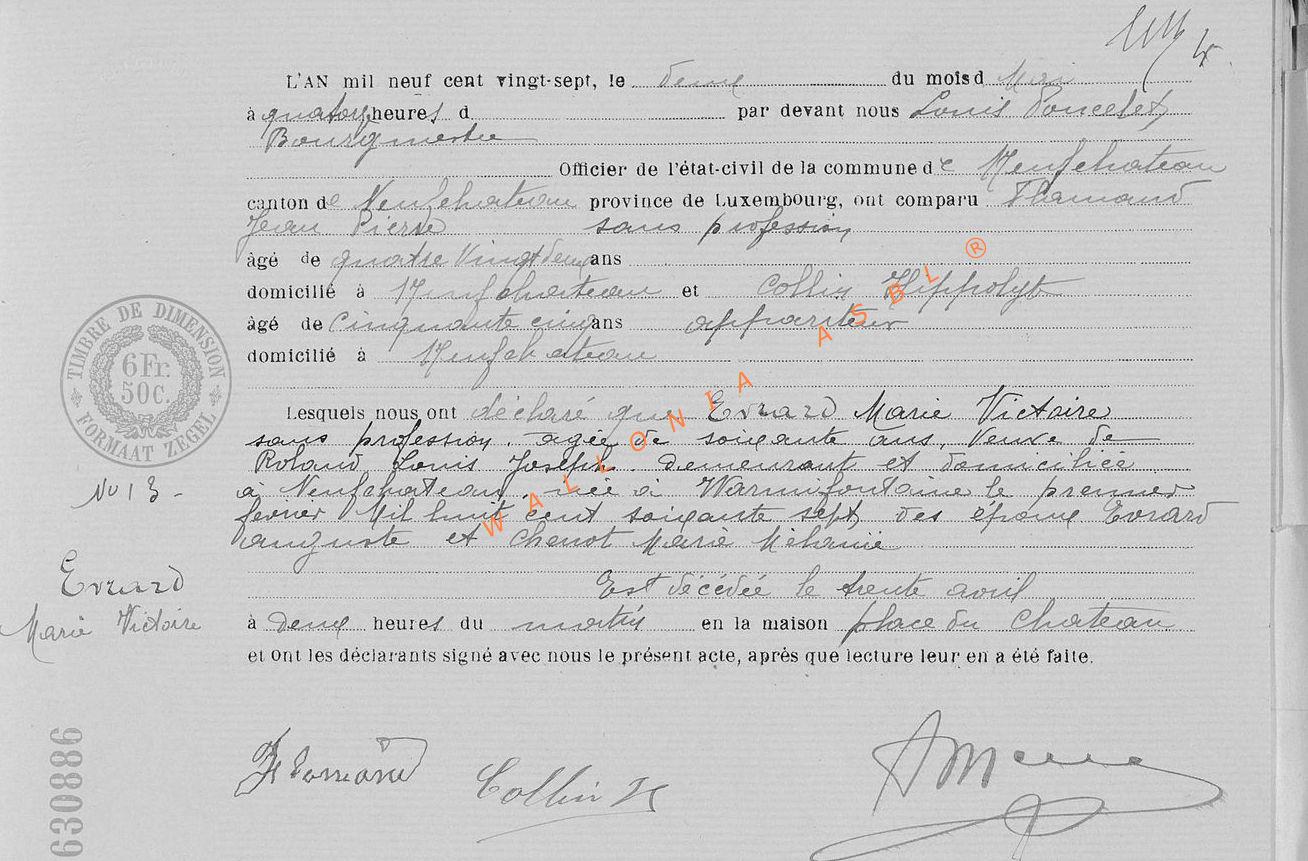 L'AN mil neuf cent vingt-sept, le deux du mois d Mai
à quatorze heures d par devant nous Louis Poncelet,
Bourgmestre
Officier de l'état-civil de la commune de Neufchateau
canton de Neufchateau province de Luxembourg, ont comparu
Jean Pierre sans profession
âgé de quatre vingt deux ans
domicilié à Neufchateau et Collin Hippolyte
âgé de cinquante cinq ans appariteur
domicilié à Neufchateau
Lesquels nous ont déclaré que Evrard Marie Victoire
sans profession, agée de soixante ans, veuve de
Roland Louis Joseph. demeurant et domiciliée
à Neufchateau, née à Warmifontaine le premier
fevrier Mil huit cent soixante sept, des époux Evrard
auguste et Chenot Marie Mélanie
Est décédée le trente avril
à deux heures du matin en la maison place du Chateau
et ont les déclarants signé avec nous le présent acte, après que lecture leur en a été faite.
TIMBRE DE DIMENSION
6 Fr.
50c.
FORMAAT ZEGEL
No 13 -
Evrard
Marie Victoire
630886
Collin H
WALLONIA ASBL ®